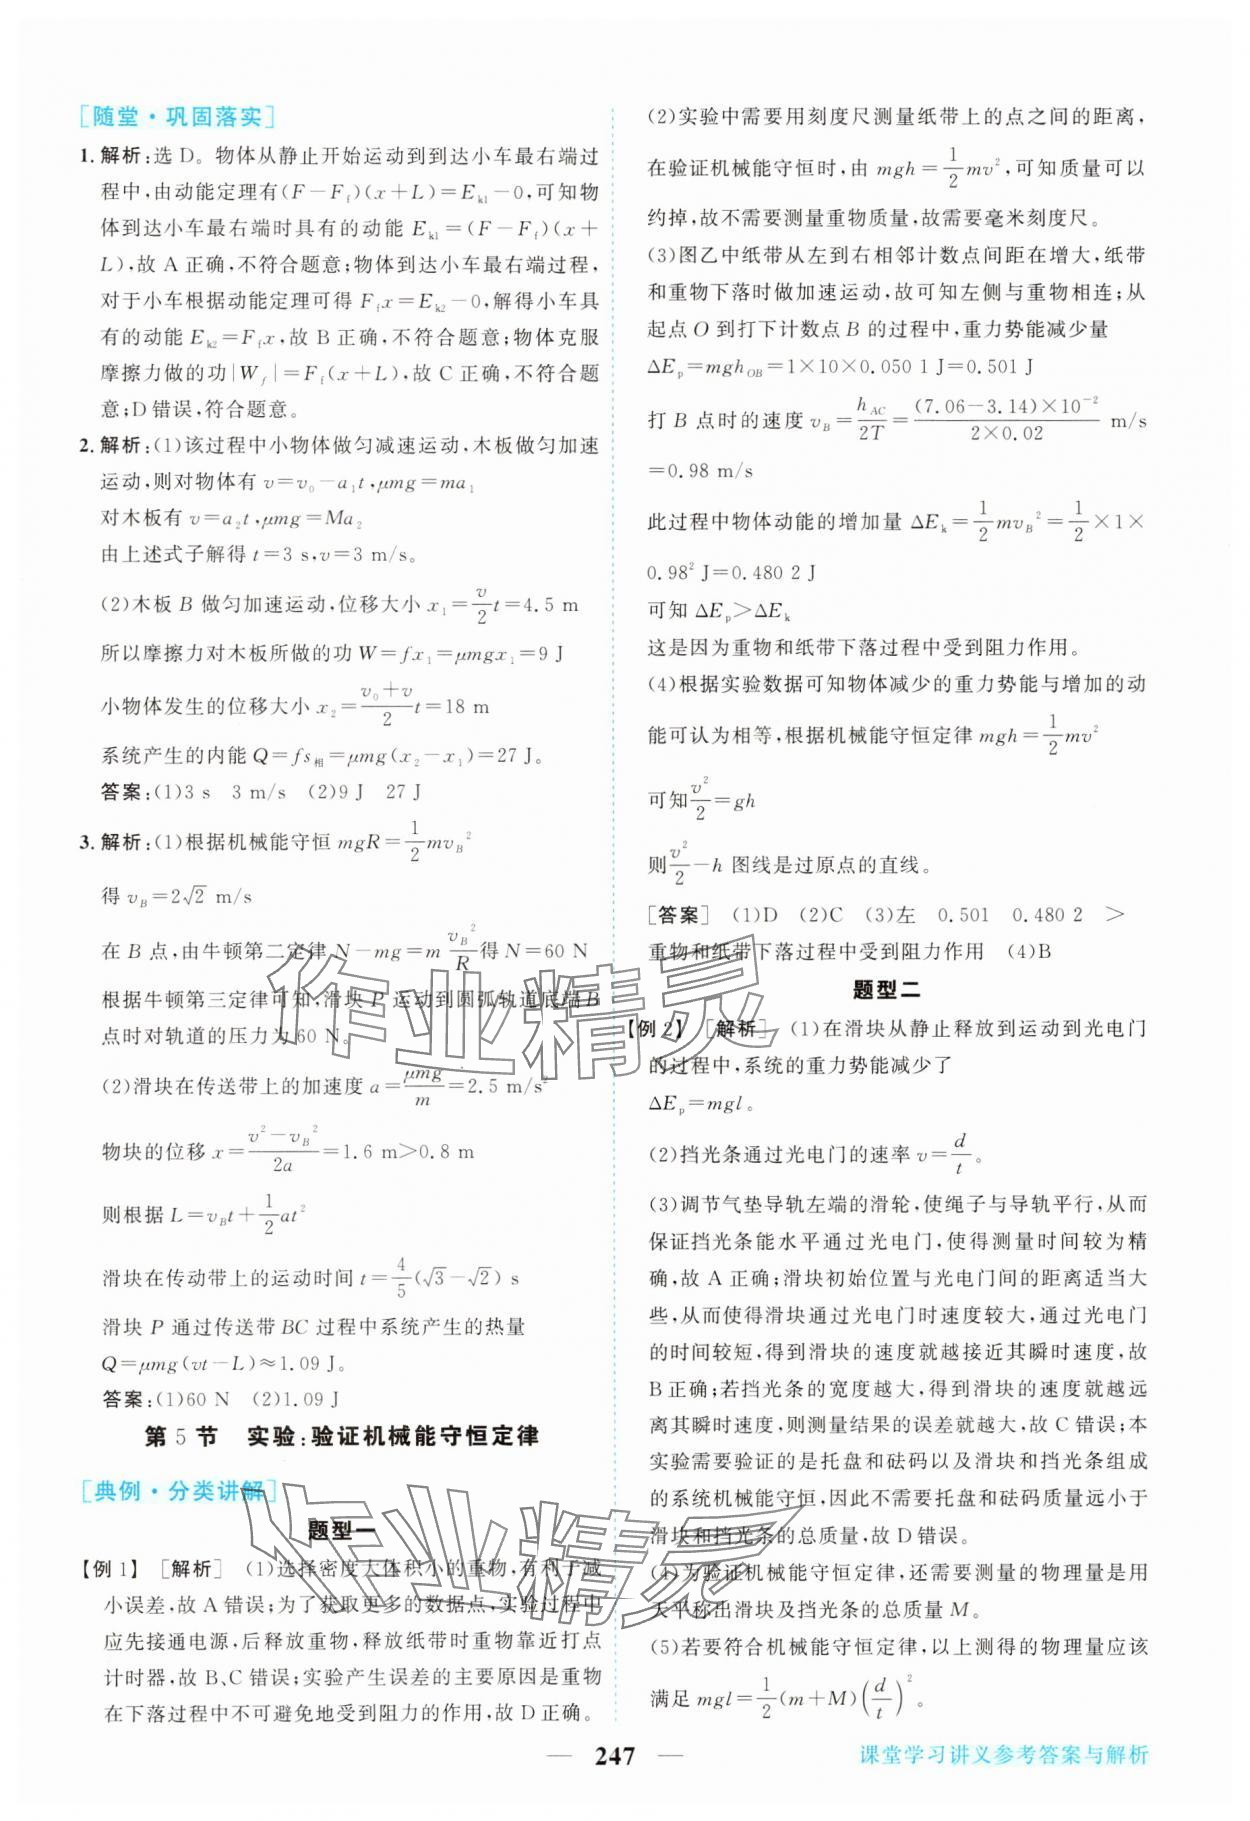 [随堂·巩固落实]
1.解析:选D。物体从静止开始运动到到达小车最右端过
程中,由动能定理有(F－F_f)(x＋L)＝E_k1－0,可知物
体到达小车最右端时具有的动能 E_k1＝(F－F_f)(x＋
L),故 A 正确,不符合题意;物体到达小车最右端过程,
对于小车根据动能定理可得 F_f x＝E_k2－0,解得小车具
有的动能 E_k2＝F_f x,故 B 正确,不符合题意;物体克服
摩擦力做的功|W_f|＝F_f(x＋L),故 C 正确,不符合题
意;D 错误,符合题意。
2.解析:(1)该过程中小物体做匀减速运动,木板做匀加速
运动,则对物体有 v＝v₀－a₁t,μmg＝ma₁
对木板有 v＝a₂t,μmg＝Ma₂
由上述式子解得 t＝3 s,v＝3 m/s。
(2)木板 B 做匀加速运动,位移大小 x₁＝v/2 t＝4.5 m
所以摩擦力对木板所做的功 W＝fx₁＝μmgx₁＝9 J
小物体发生的位移大小 x₂＝(v₀＋v)/2 t＝18 m
系统产生的内能 Q＝fs相＝μmg(x₂－x₁)＝27 J。
答案:(1)3 s 3 m/s (2)9 J 27 J
3.解析:(1)根据机械能守恒 mgR＝1/2 mv_B²
得 v_B＝2√2 m/s
在 B 点,由牛顿第二定律 N－mg＝m v_B²/R 得 N＝60 N
根据牛顿第三定律可知,滑块 P 运动到圆弧轨道底端B
点时对轨道的压力为 60 N。
(2)滑块在传送带上的加速度 a＝μmg/m＝2.5 m/s²
物块的位移 x＝(v²－v_B²)/2a＝1.6 m＞0.8 m
则根据 L＝v_B t＋1/2 at²
滑块在传动带上的运动时间 t＝4/5(√3－√2) s
滑块 P 通过传送带 BC 过程中系统产生的热量
Q＝μmg(vt－L)≈1.09 J。
答案:(1)60 N (2)1.09 J
第 5 节 实验:验证机械能守恒定律
[典例·分类讲解]
题型一
【例 1】 [解析] (1)选择密度大体积小的重物,有利于减
小误差,故 A 错误;为了获取更多的数据点,实验过程中
应先接通电源,后释放重物,释放纸带时重物靠近打点
计时器,故 B、C 错误;实验产生误差的主要原因是重物
在下落过程中不可避免地受到阻力的作用,故 D 正确。
(2)实验中需要用刻度尺测量纸带上的点之间的距离,
在验证机械能守恒时,由 mgh＝1/2 mv²,可知质量可以
约掉,故不需要测量重物质量,故需要毫米刻度尺。
(3)图乙中纸带从左到右相邻计数点间距在增大,纸带
和重物下落时做加速运动,故可知左侧与重物相连;从
起点 O 到打下计数点 B 的过程中,重力势能减少量
ΔE_p＝mgh_OB＝1×10×0.050 1 J＝0.501 J
打 B 点时的速度 v_B＝h_AC/2T＝(7.06－3.14)×10⁻²/(2×0.02) m/s
＝0.98 m/s
此过程中物体动能的增加量 ΔE_k＝1/2 mv_B²＝1/2×1×
0.98² J＝0.480 2 J
可知 ΔE_p＞ΔE_k
这是因为重物和纸带下落过程中受到阻力作用。
(4)根据实验数据可知物体减少的重力势能与增加的动
能可认为相等,根据机械能守恒定律 mgh＝1/2 mv²
可知 v²/2＝gh
则 v²/2－h 图线是过原点的直线。
[答案] (1)D (2)C (3)左 0.501 0.480 2 ＞
重物和纸带下落过程中受到阻力作用 (4)B
题型二
【例 2】 [解析] (1)在滑块从静止释放到运动到光电门
的过程中,系统的重力势能减少了
ΔE_p＝mgl。
(2)挡光条通过光电门的速率 v＝d/t。
(3)调节气垫导轨左端的滑轮,使绳子与导轨平行,从而
保证挡光条能水平通过光电门,使得测量时间较为精
确,故 A 正确;滑块初始位置与光电门间的距离适当大
些,从而使得滑块通过光电门时速度较大,通过光电门
的时间较短,得到滑块的速度就越接近其瞬时速度,故
B 正确;若挡光条的宽度越大,得到滑块的速度就越远
离其瞬时速度,则测量结果的误差就越大,故 C 错误;本
实验需要验证的是托盘和砝码以及滑块和挡光条组成
的系统机械能守恒,因此不需要托盘和砝码质量远小于
滑块和挡光条的总质量,故 D 错误。
(4)为验证机械能守恒定律,还需要测量的物理量是用
天平称出滑块及挡光条的总质量 M。
(5)若要符合机械能守恒定律,以上测得的物理量应该
满足 mgl＝1/2(m＋M)(d/t)²。
作业精灵
作业精灵
— 247 —
课堂学习讲义参考答案与解析